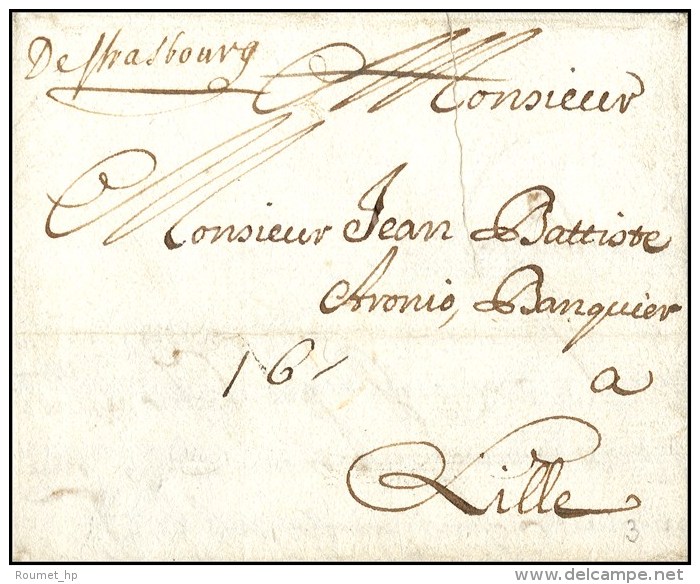 De strasbourg
Monsieur
Monsieur Jean Battiste
Aronio, Banquier
16 a
Lille
3
Roumet_hp
delcampe.net